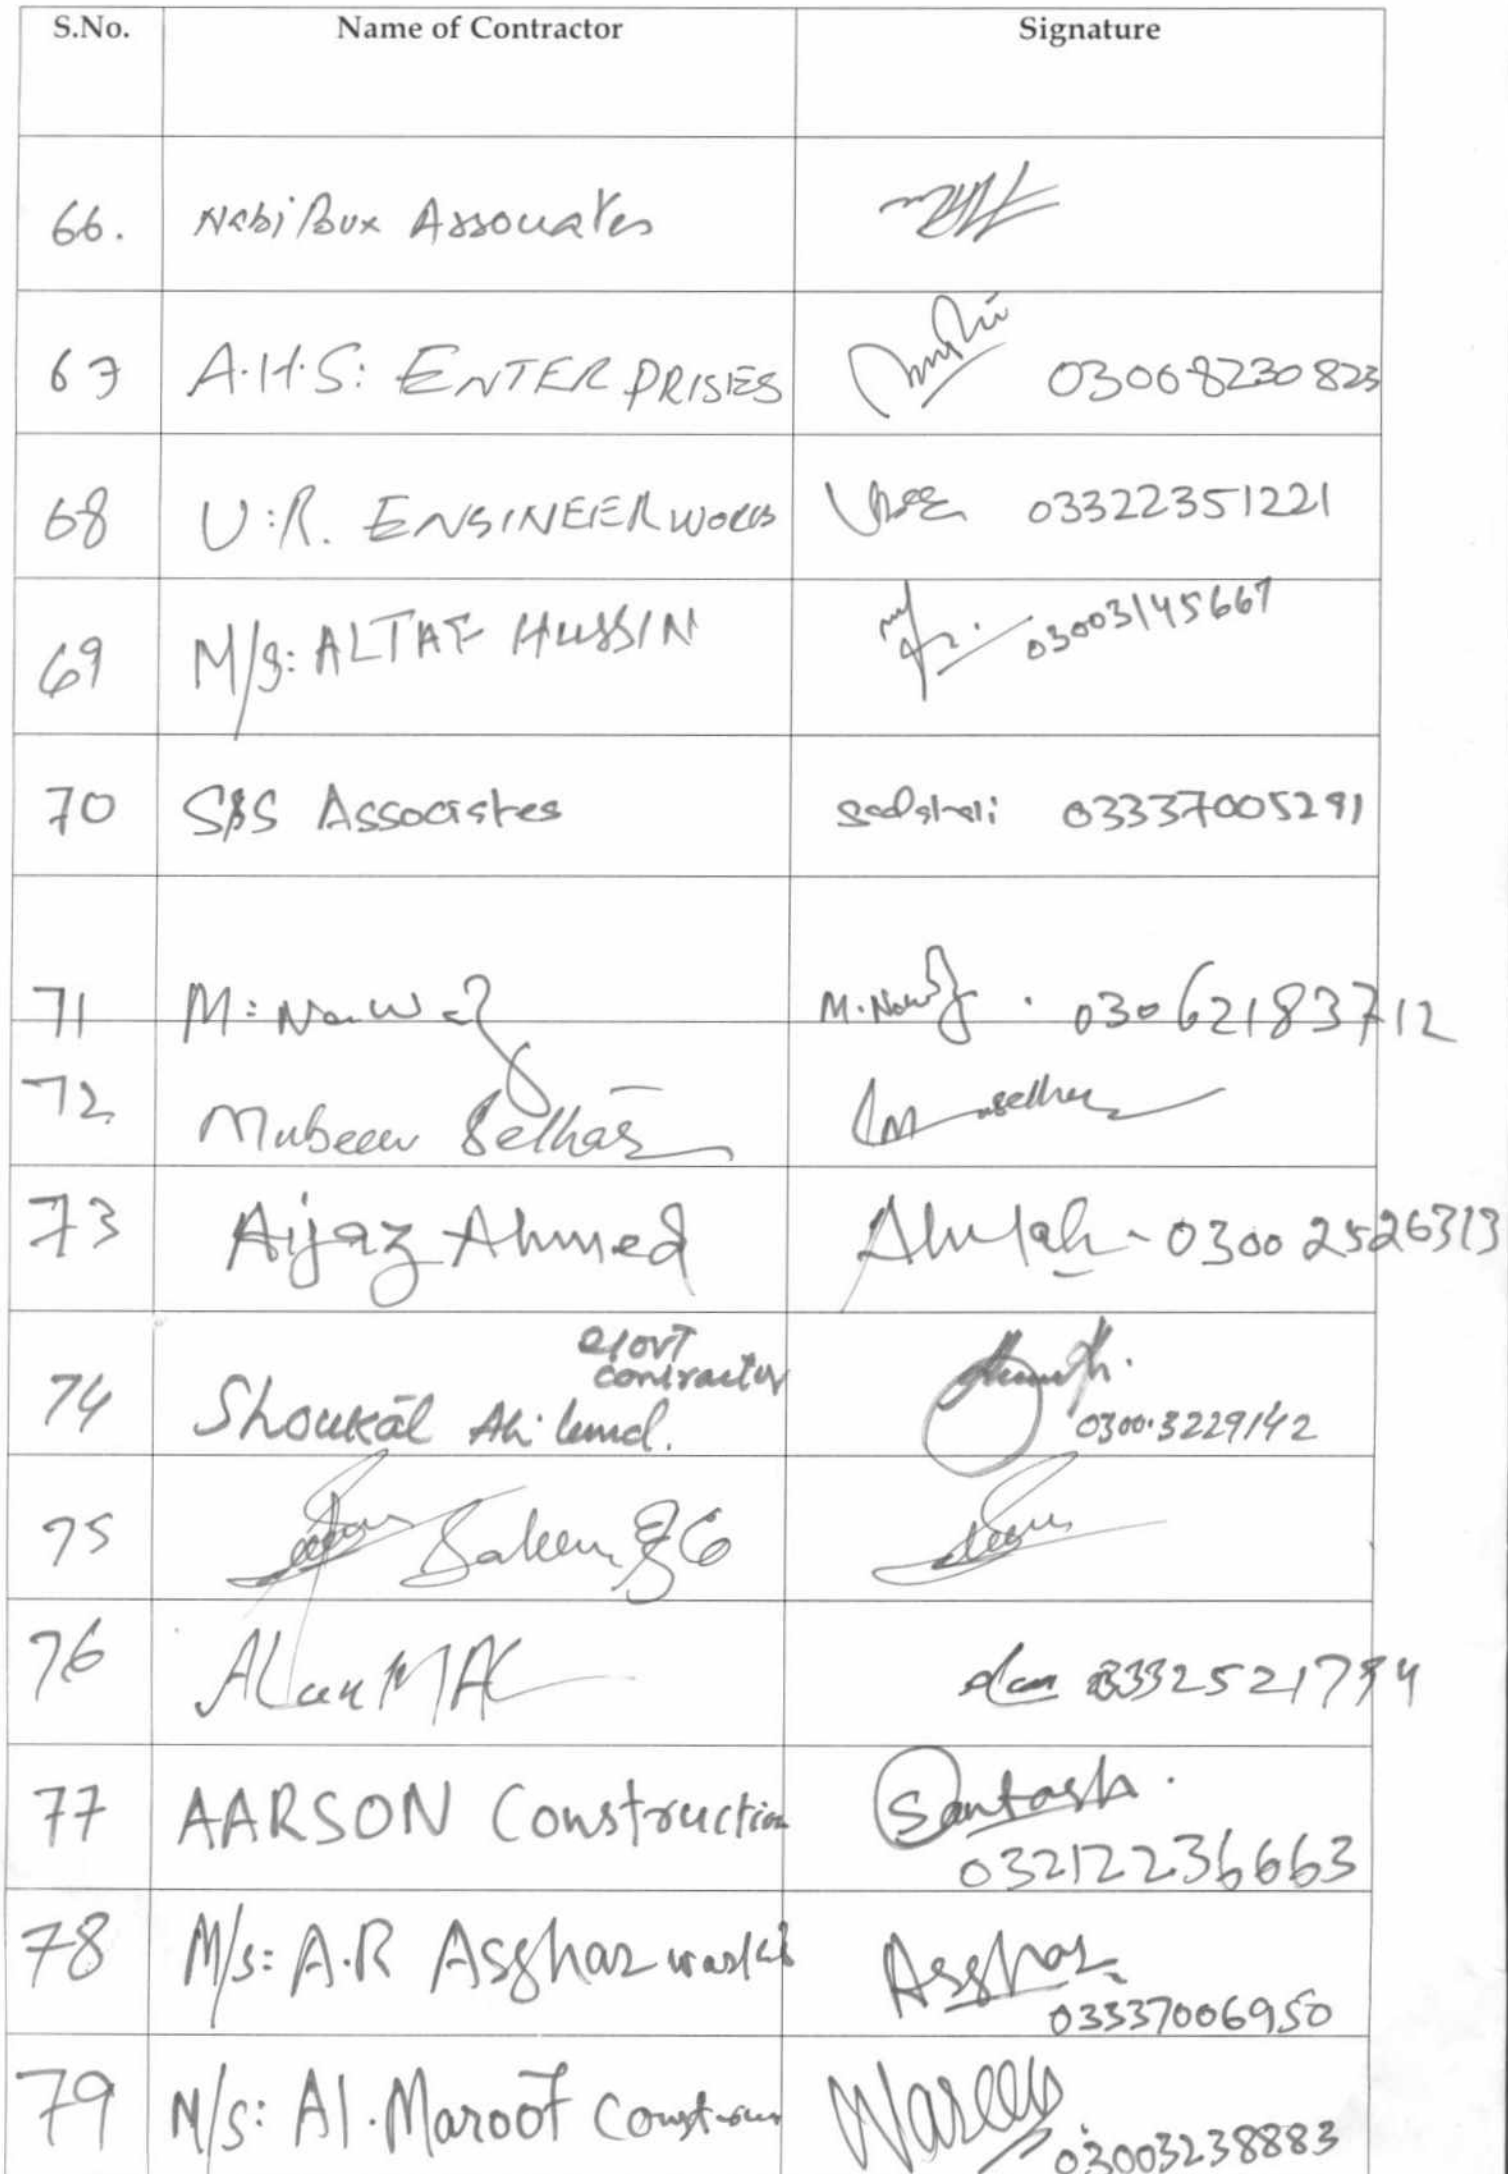 S.No. Name of Contractor Signature
66. Nabi Bux Associates
67 A.H.S: ENTERPRISES 03068230823
68 U:R. ENGINEER WORKS 03322351221
69 M/S: ALTAF HUSSIN 03003145667
70 S&S Associates 03337005291
71 M: Nawaz M. Nawaz . 03062183712
72 Mubeen
73 Aijaz Ahmed 03002526313
Govt
contractor
74 Shoukat Ali 0300.3229142
75 Saleem & Co
76
77 AARSON Construction Santosh.
03212236663
78 M/s: A.R Asghar works Asghar
03337006950
79 M/s: Al. Maroof Waree
03003238883